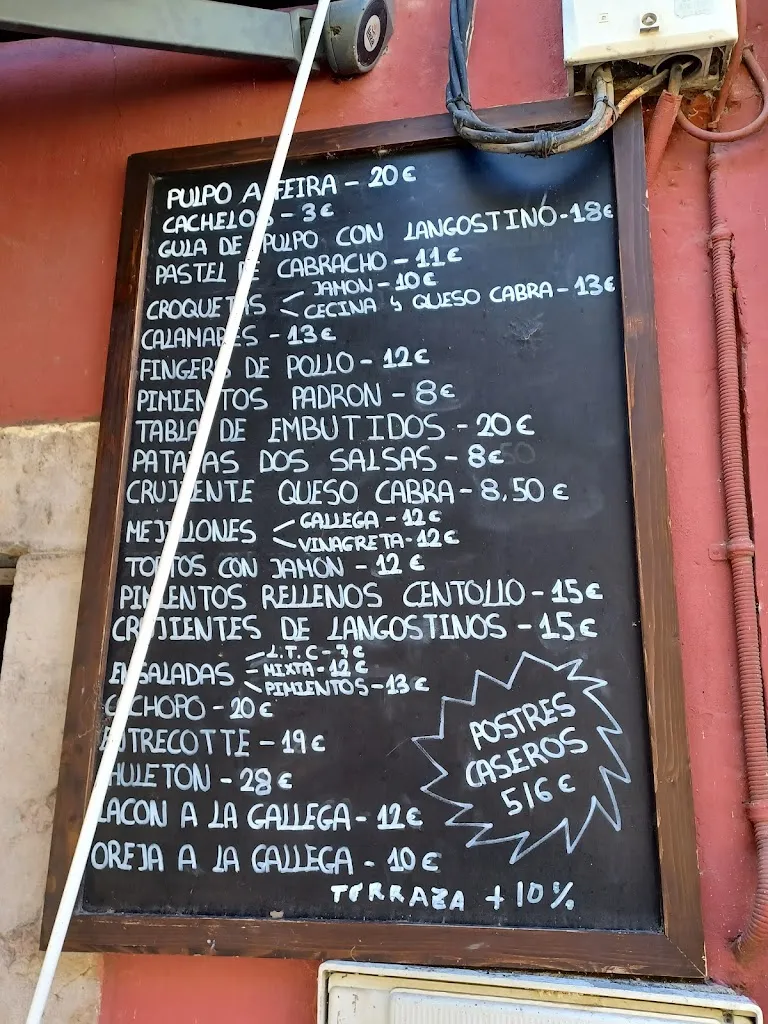 PULPO A FEIRA - 20€
CACHELOS - 3€
GULA DE PULPO CON LANGOSTINO - 18€
PASTEL DE CABRACHO - 11€
CROQUETAS
JAMON - 10€
CECINA y QUESO CABRA - 13€
CALAMARES - 13€
FINGERS DE POLLO - 12€
PIMIENTOS PADRON - 8€
TABLA DE EMBUTIDOS - 20€
PATATAS DOS SALSAS - 8€
CRUJIENTE QUESO CABRA - 8,50€
MEJILLONES
GALLEGA - 12€
VINAGRETA - 12€
TORTOS CON JAMON - 12€
PIMIENTOS RELLENOS CENTOLLO - 15€
CRUJIENTES DE LANGOSTINOS - 15€
ENSALADAS
L.T.C - 7€
MIXTA - 12€
PIMIENTOS - 13€
CACHOPO - 20€
ENTRECOTTE - 19€
CHULETON - 28€
LACON A LA GALLEGA - 12€
OREJA A LA GALLEGA - 10€
TERRAZA +10%
POSTRES
CASEROS
5/6€